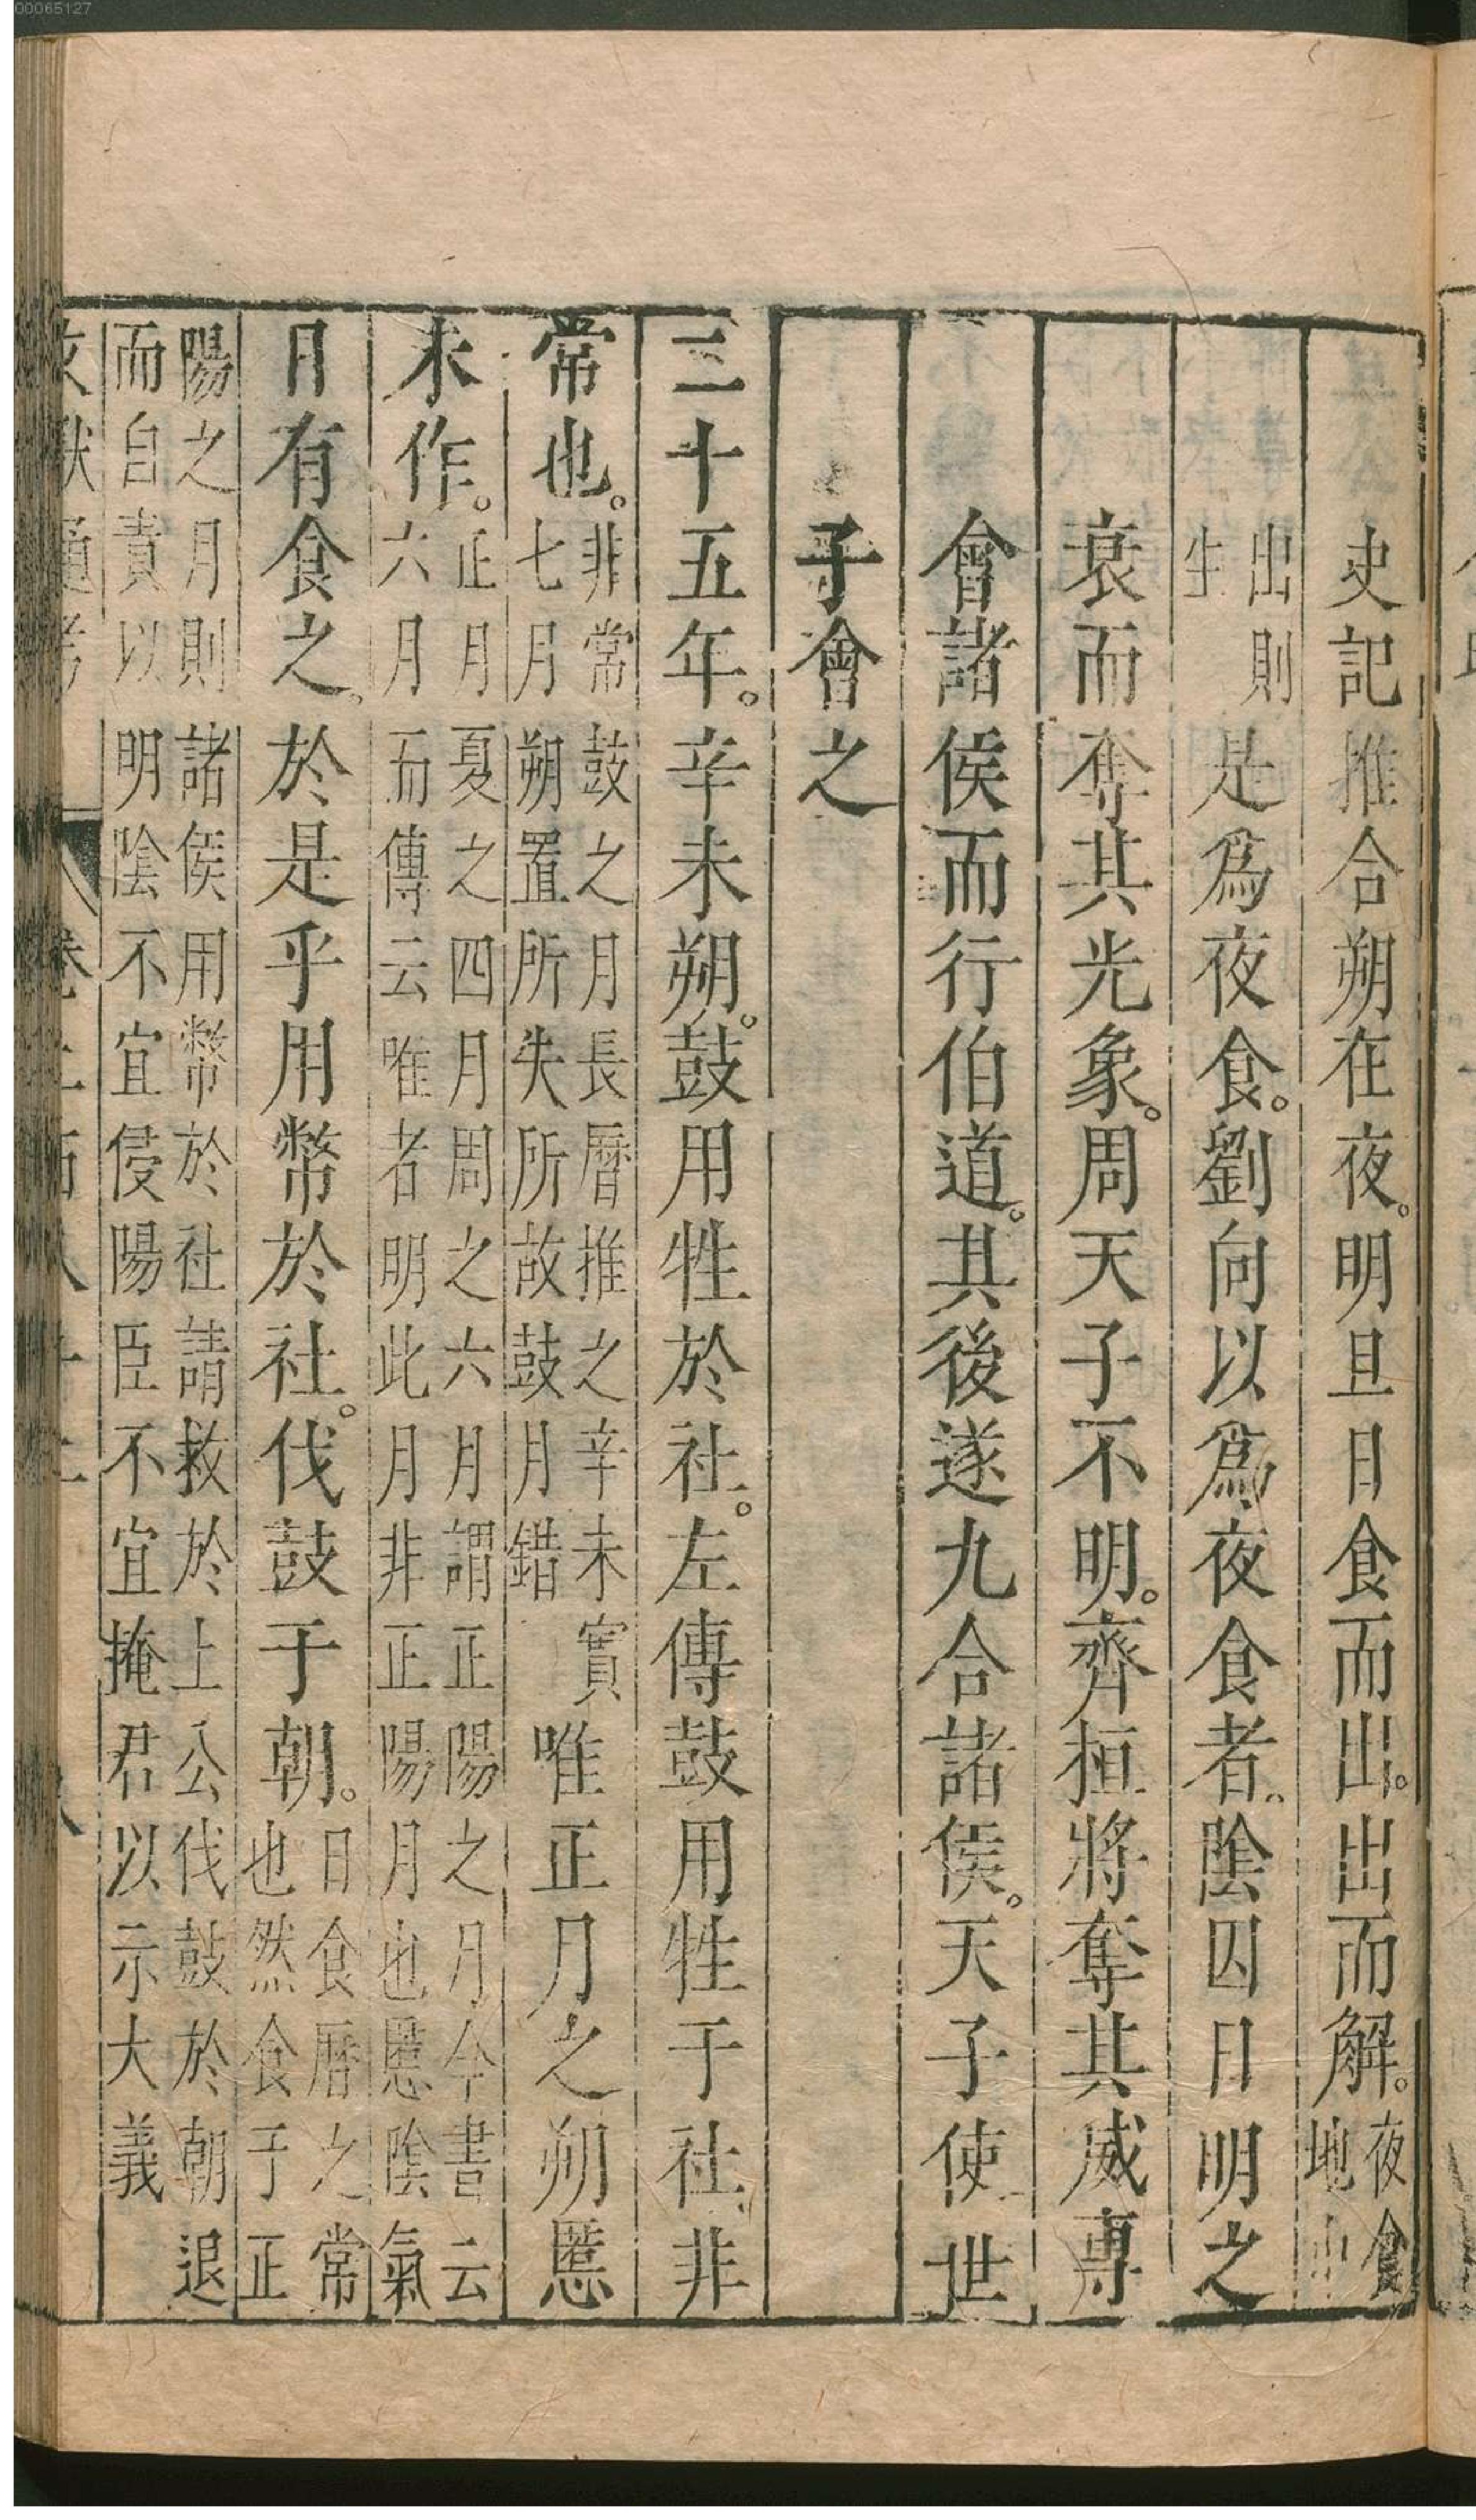 00065127
史記推合朔在夜。明旦日食而出。出而解。夜食地中
出則生是爲夜食。劉向以爲夜食者。陰因日明之
衰而奪其光象。周天子不明。齊桓將奪其威專
會諸侯而行伯道。其後遂九合諸侯。天子使世
子會之
三十五年。辛未朔。鼓用牲於社。左傳鼓用牲于社。非
常也。非常鼓之月長曆推之辛未實七月朔置所失所故鼓月錯唯正月之朔慝
未作。正月夏之四月周之六月謂正陽之月今書六月而傳云唯者明此月非正陽月也慝陰氣云
日有食之。於是乎用幣於社。伐鼓于朝。日食曆之常也然食于正
陽之月則諸侯用幣於社請救於上公伐鼓於朝退
而自責以明陰不宜侵陽臣不宜掩君以示大義